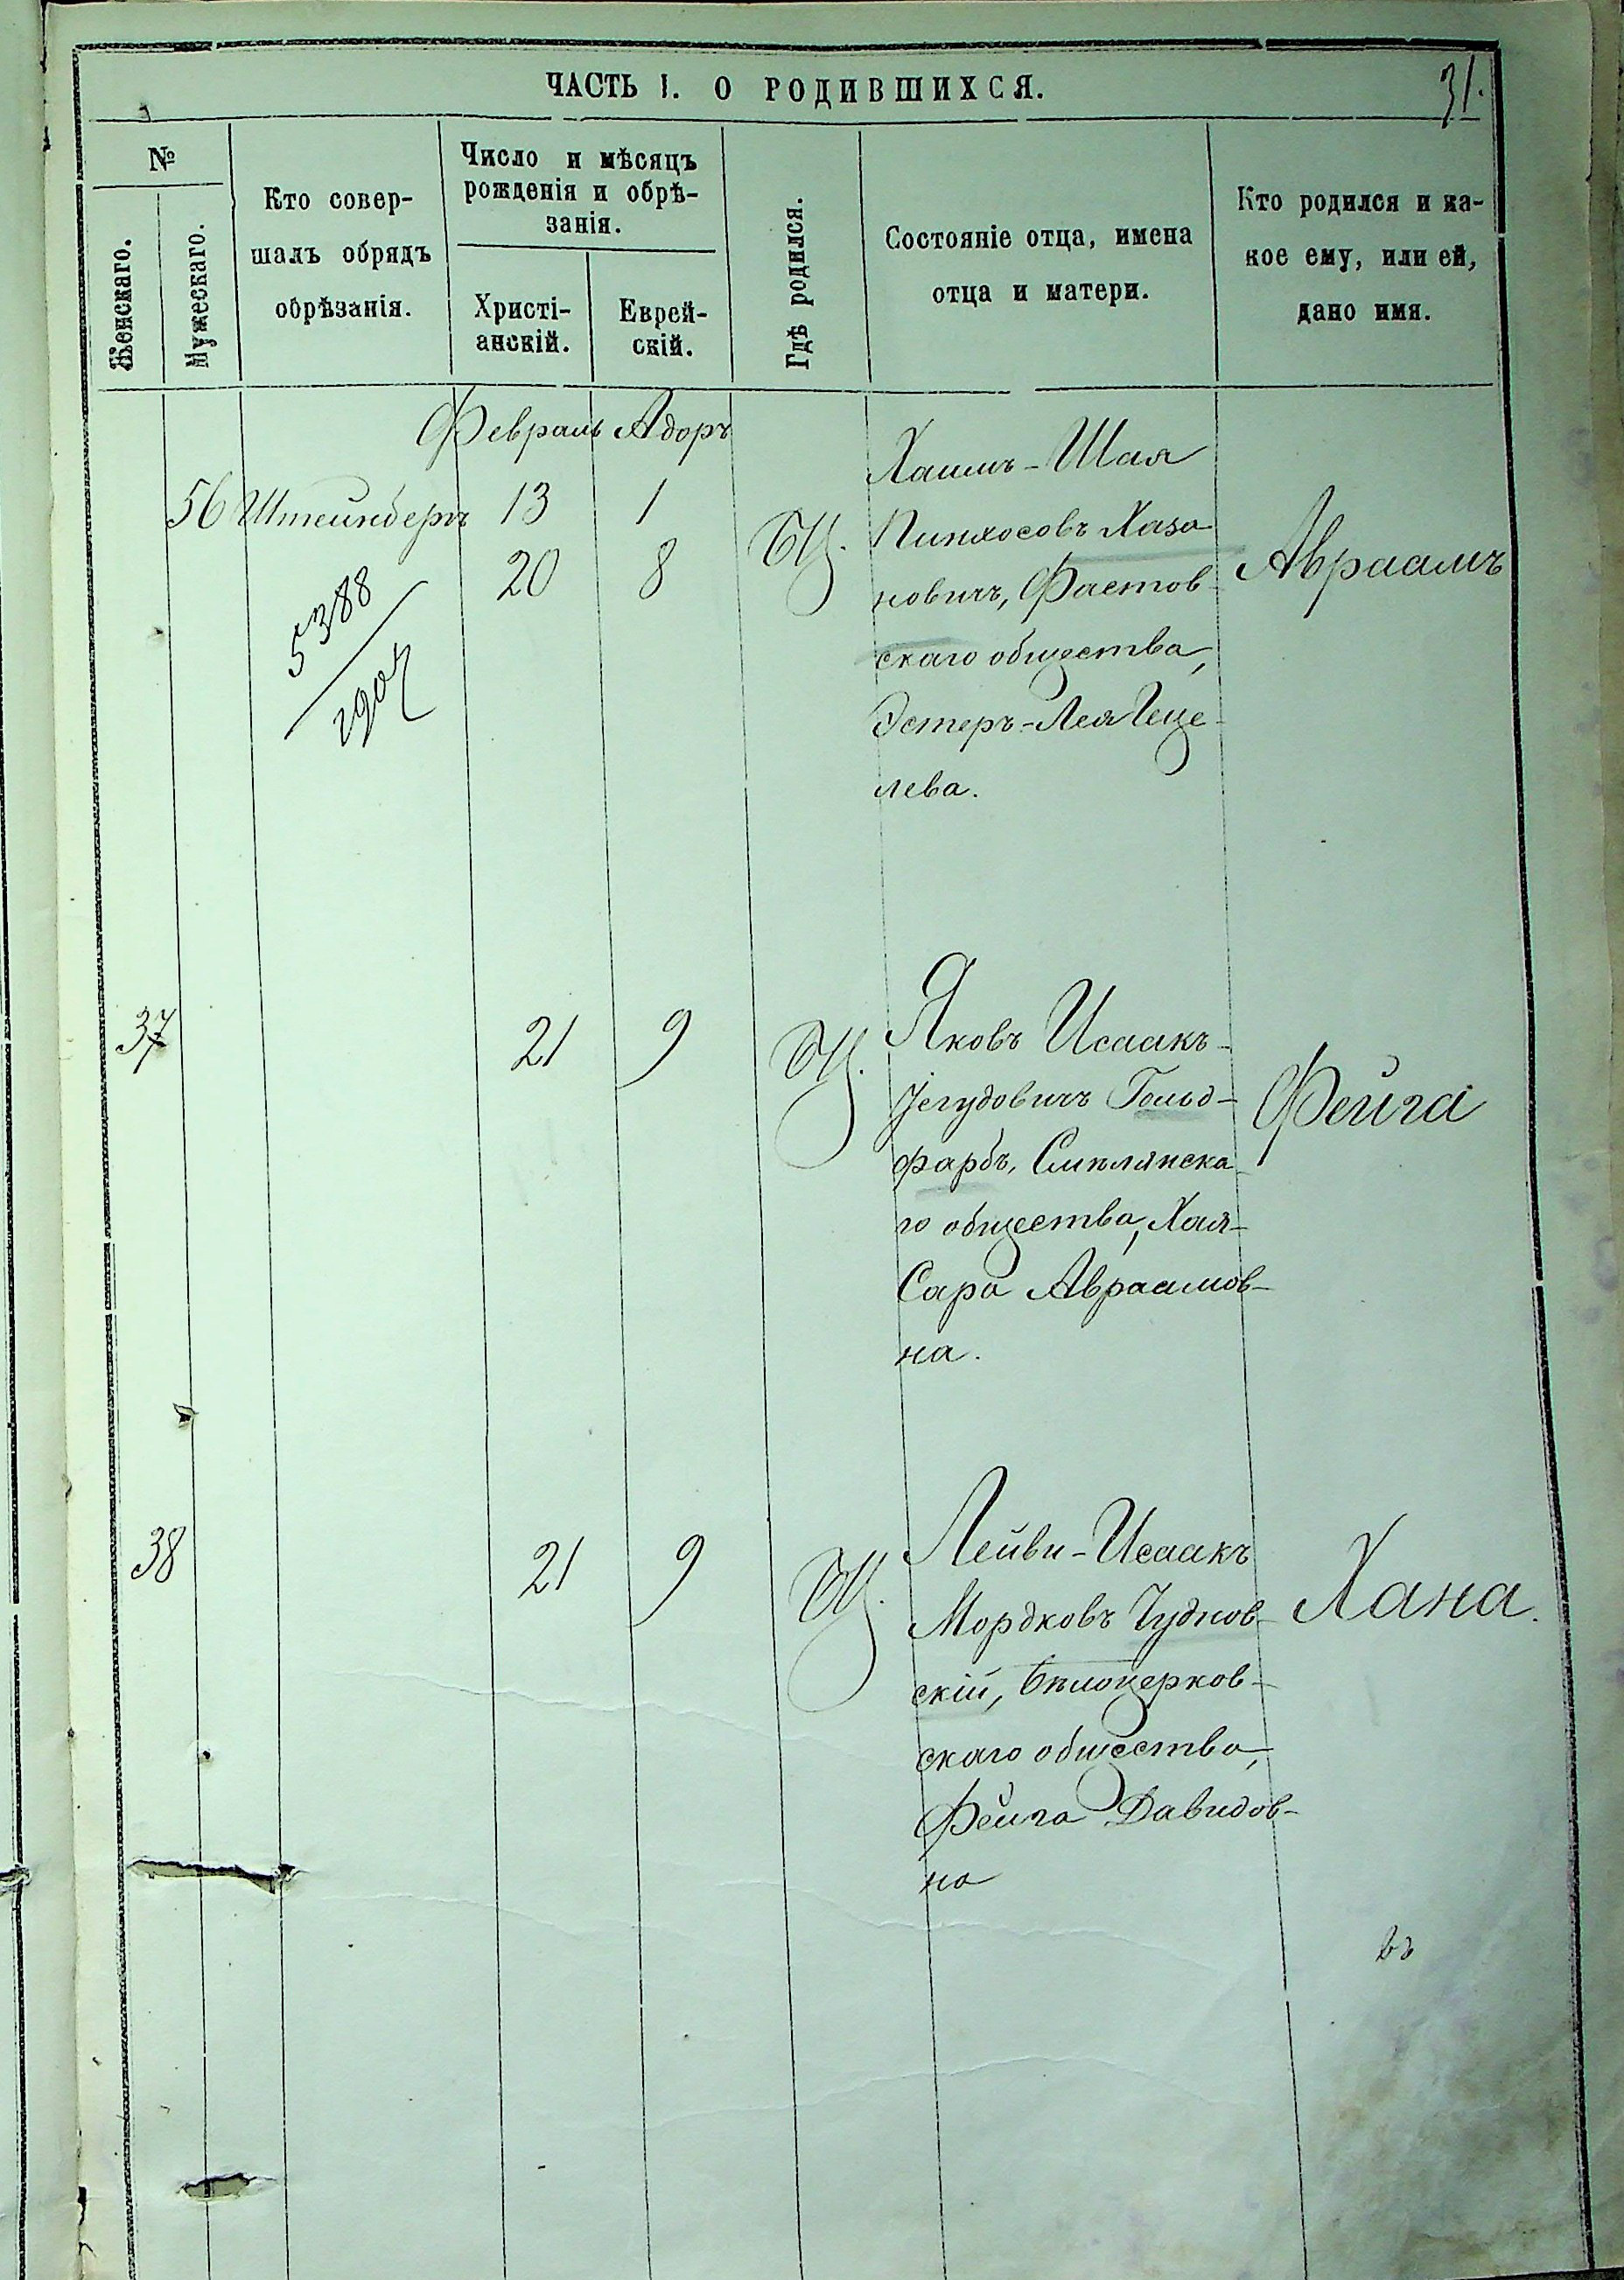 ЧАСТЬ I. О РОДИВШИХСЯ.
31.
№
Женскаго.
Мужескаго.
Кто совер-
шалъ обрядъ
обрѣзанія.
Число и мѣсяцъ
рожденія и обрѣ-
занія.
Христі-
анскій.
Еврей-
скій.
Гдѣ родился.
Состояніе отца, имена
отца и матери.
Кто родился и ка-
кое ему, или ей,
дано имя.
Февраль Адоръ
56 Штейнбергъ 13 1
20 8
БЦ.
5388
Хаимъ-Шая
Пинхосовъ Хаза-
новичъ, Фастов-
скаго общества,
Эстеръ-Лея Геце-
лева.
Авраамъ
37
21 9
БЦ.
Яковъ Исаакъ-
Іегудовичъ Гольд-
фарбъ, Смѣлянска-
го общества, Хая-
Сара Авраамов-
на.
Фейга
38
21 9
БЦ.
Лейви-Исаакъ
Мордковъ Чуднов-
скій, Бѣлоцерков-
скаго общества,
Фейга Давидов-
на
Хана.
въ